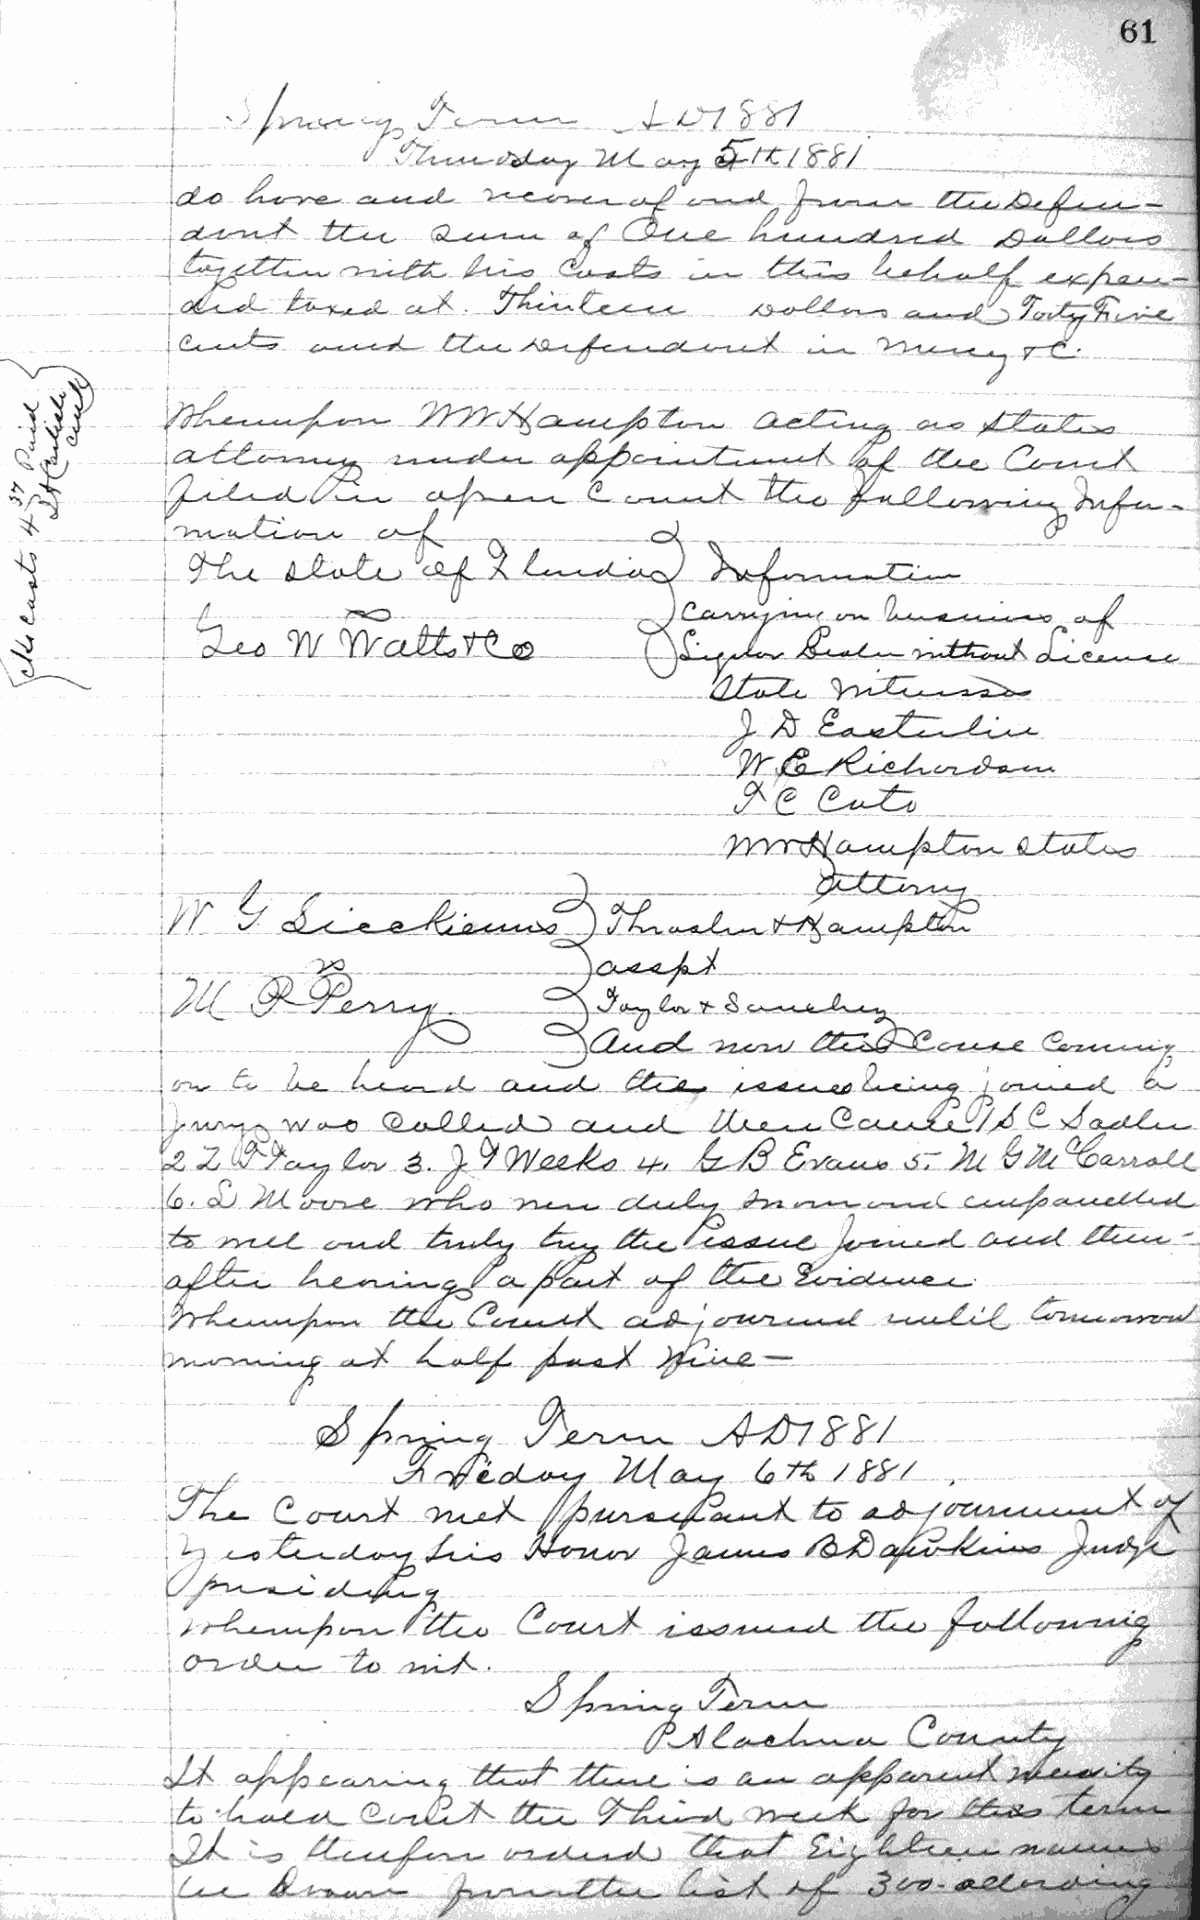 61
Spring Term AD 1881
Thursday May 5th 1881
do have and recover of and from the Defen-
dant the sum of One hundred Dollars
together with his Costs in this behalf expen-
ded taxed at. Thirteen Dollars and Forty Five
cents and the Defendant in mercy &C.
Costs 4 37 Paid
Whereupon WW Hampton acting as States
attorney under appointment of the Court
filed in open Court the following Infor-
mation of
The State of Florida } Information
vs } carrying on business of
Geo W Watts & Co } Liquor Dealer without License
State Witnesses
J D Easterlin
W E Richardson
F C Cato
WW Hampton States
Attorny
W G } Thrasher & Hampton
vs } asspt
M R Perry } Taylor & Sanchez
} And now this Cause coming
on to be heard and the issues being joined a
Jury was Called and then Came 1 S C Sadler
2 Z T Taylor 3. J T Weeks 4. G B Evans 5. M G McCarroll
6. L Moore who were duly sworn and empanelled
to well and truly try the issue Joined and then-
after hearing a part of the Evidence
Whereupon the Court adjourned until tomorrow
morning at half past Nine —
Spring Term AD 1881
Friday May 6th 1881.
The Court met pursuant to adjournment of
Yesterday his Honor James B Dawkins Judge
presiding
Whereupon the Court issued the following
order to wit.
Spring Term
Alachua County
It appearing that there is an apparent necessity
to hold Court the Third week for this term
It is therefore ordered that Eighteen names
be drawn from the list of 300. according